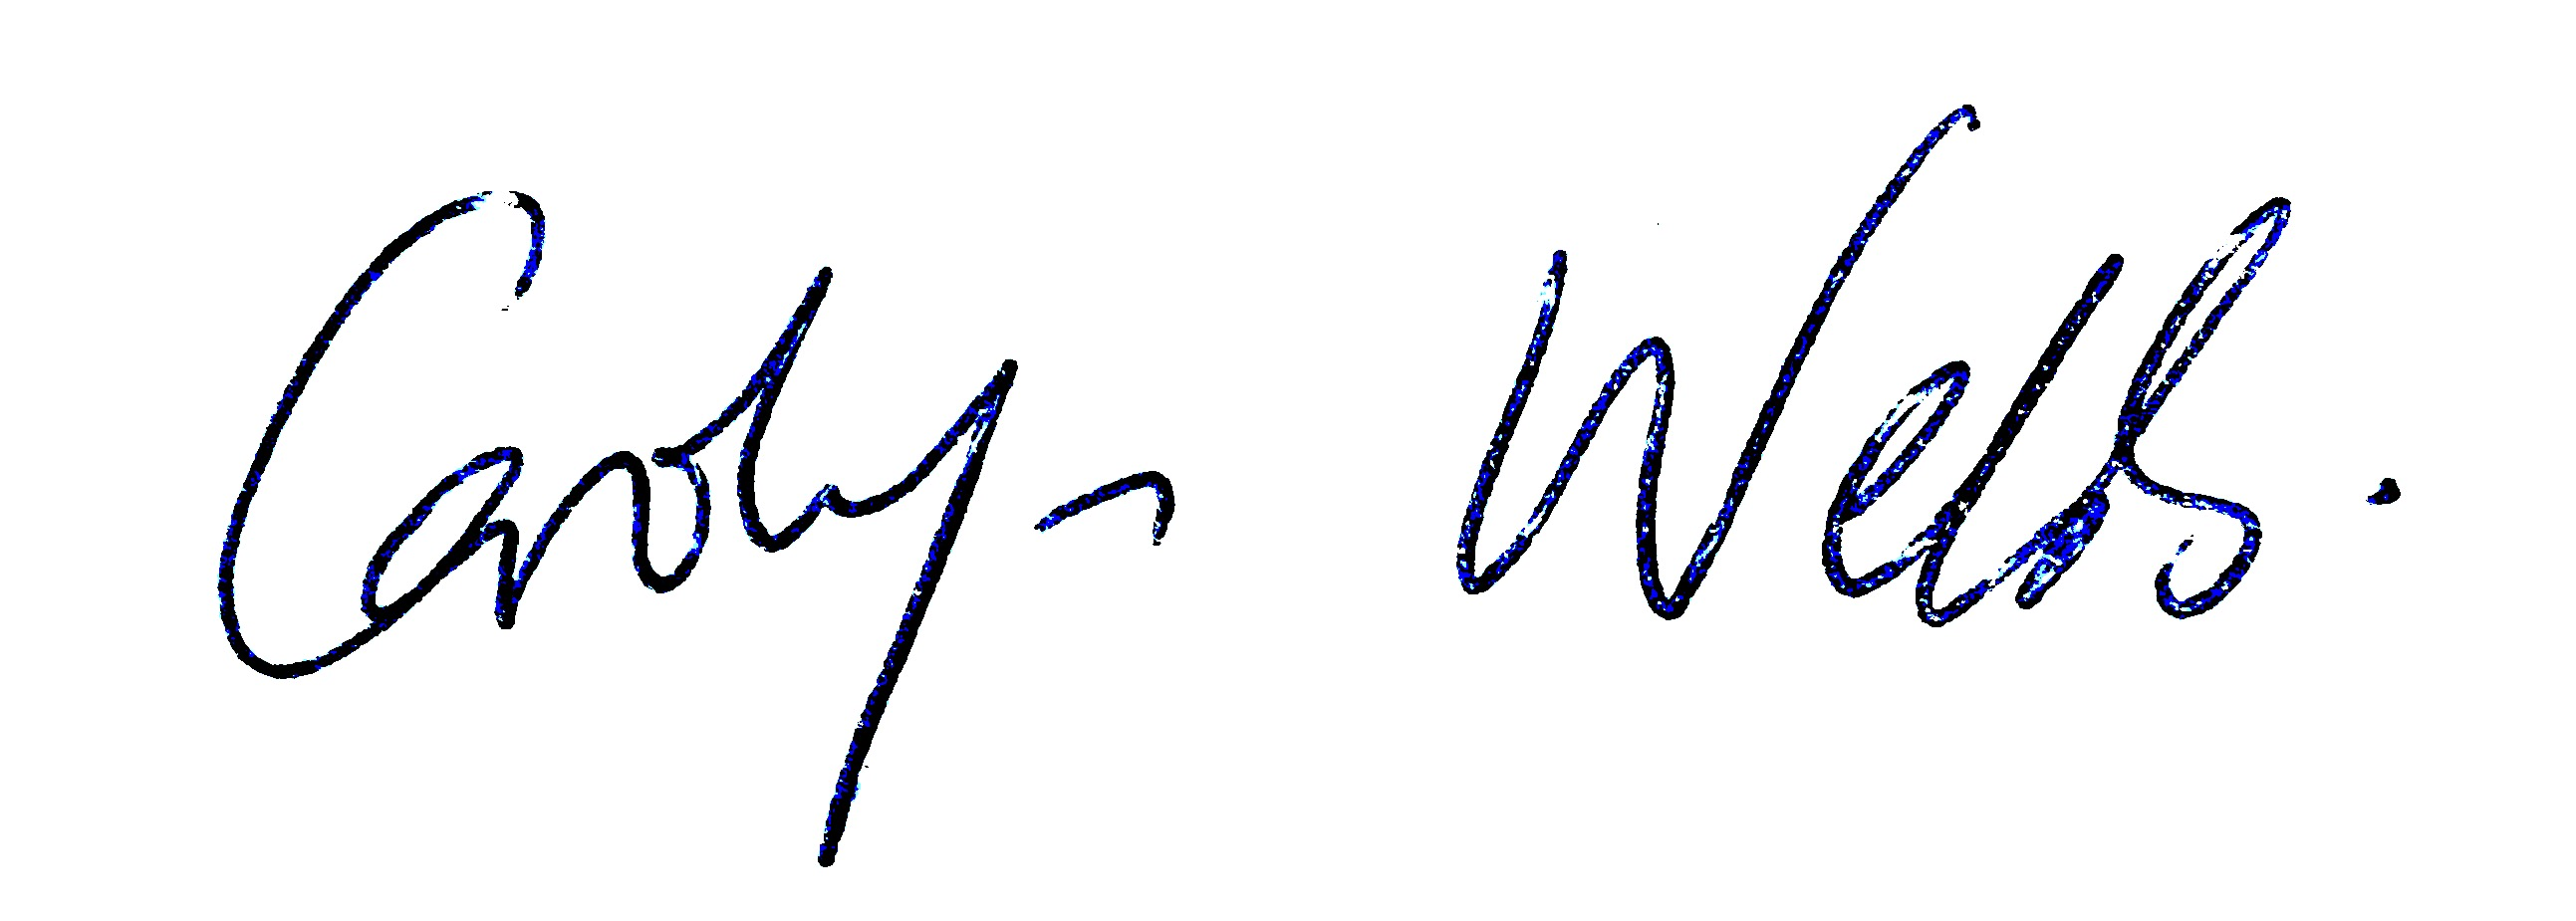 Carolyn Webb.